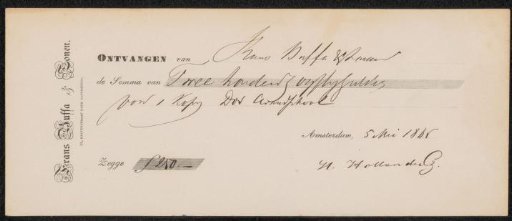 Frans Buffa & Zonen.
ONTVANGEN van Frans Buffa & Zonen
de Somma van Twee honderd vyftig gulden
voor 1 Kopy Dos
Amsterdam, 5 Mei 18
Zegge f 250.—
H. Hollander